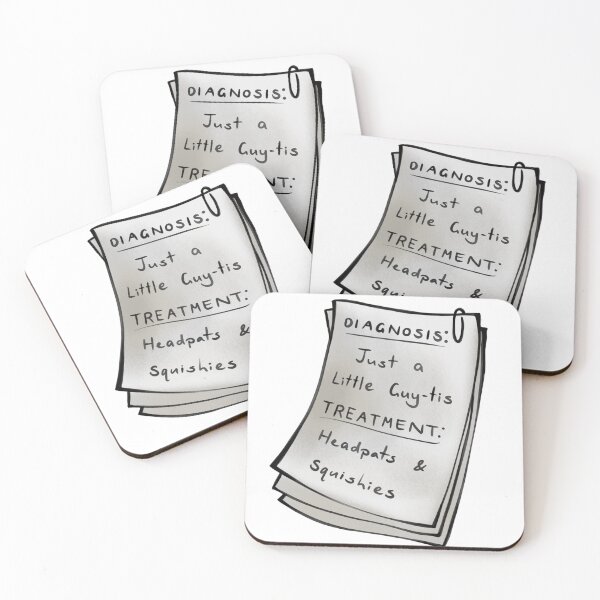 DIAGNOSIS:
Just a
Little Guy-tis
TREATMENT:
DIAGNOSIS:
Just a
Little Guy-tis
TREATMENT:
Headpats &
DIAGNOSIS:
Just a
Little Guy-tis
TREATMENT:
Headpats &
Squishies
DIAGNOSIS:
Just a
Little Guy-tis
TREATMENT:
Headpats &
Squishies